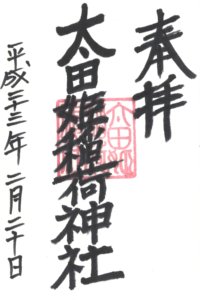 奉拝
太田姫稲荷神社
平成二十三年二月二十日